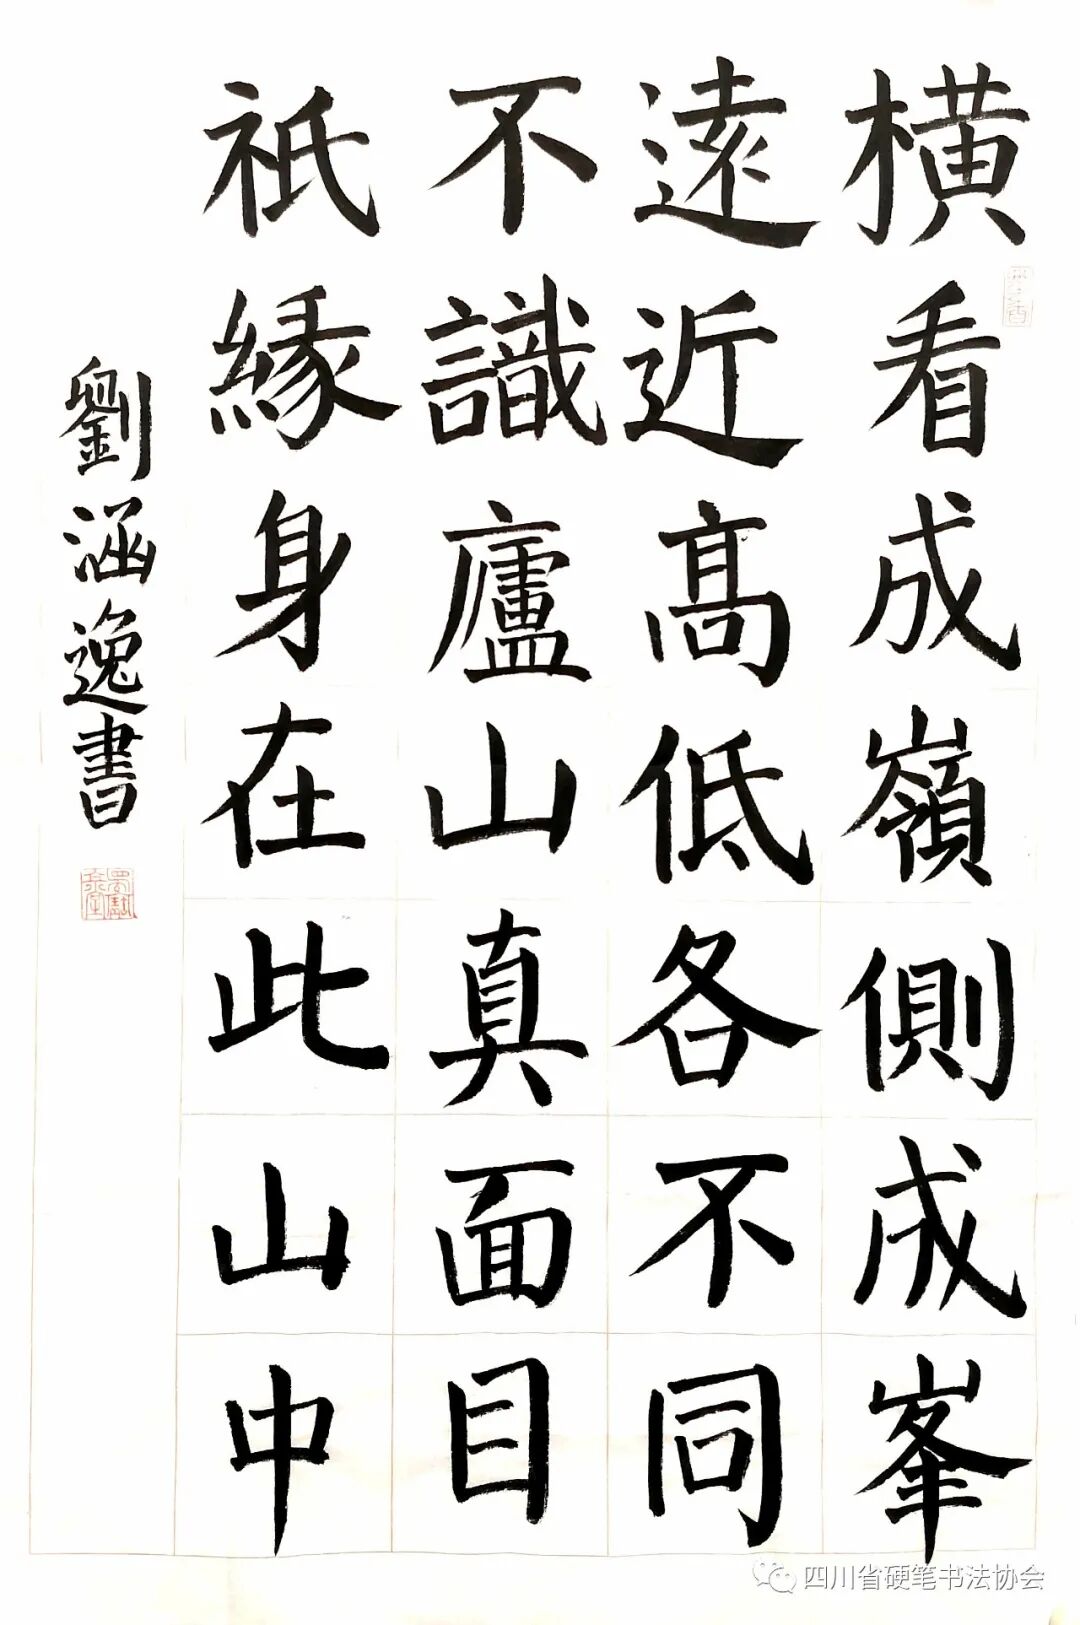 橫看成嶺側成峯
遠近高低各不同
不識廬山真面目
祇緣身在此山中
劉涵逸書
四川省硬笔书法协会